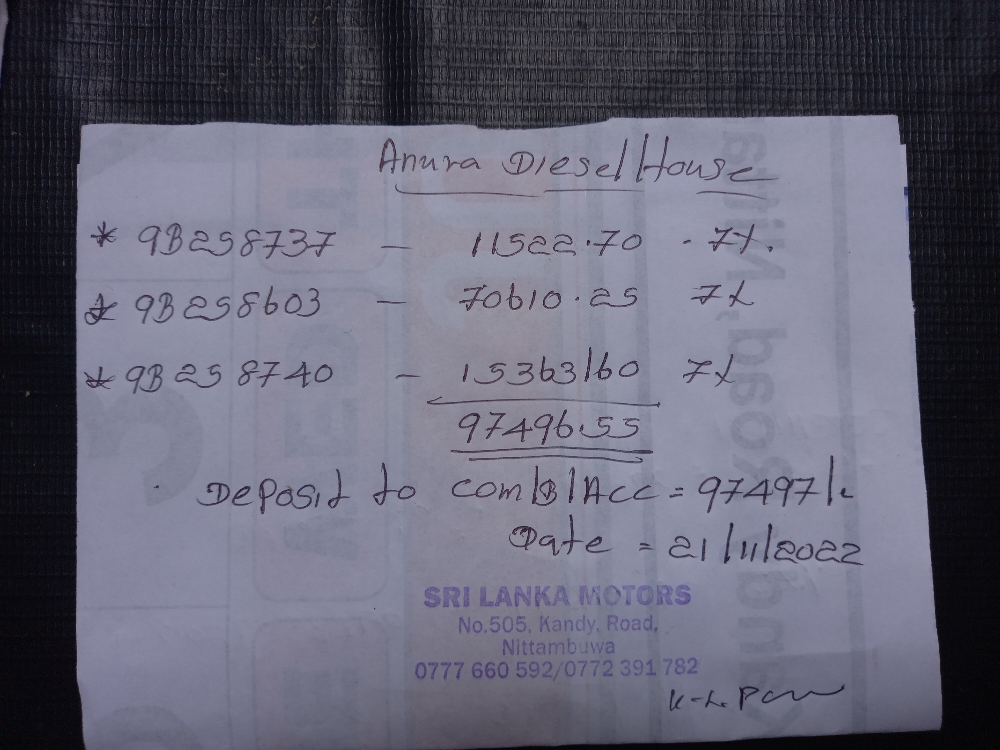 Anura Diesel House
* 9B258737 - 11522.70 - 7%.
* 9B258603 - 70610.25 7%
* 9B258740 - 15363/60 7%
97496.55
Deposit to com/B/Acc = 97497/-
Date = 21/11/2022
SRI LANKA MOTORS
No.505, Kandy, Road,
Nittambuwa
0777 660 592/0772 391 782